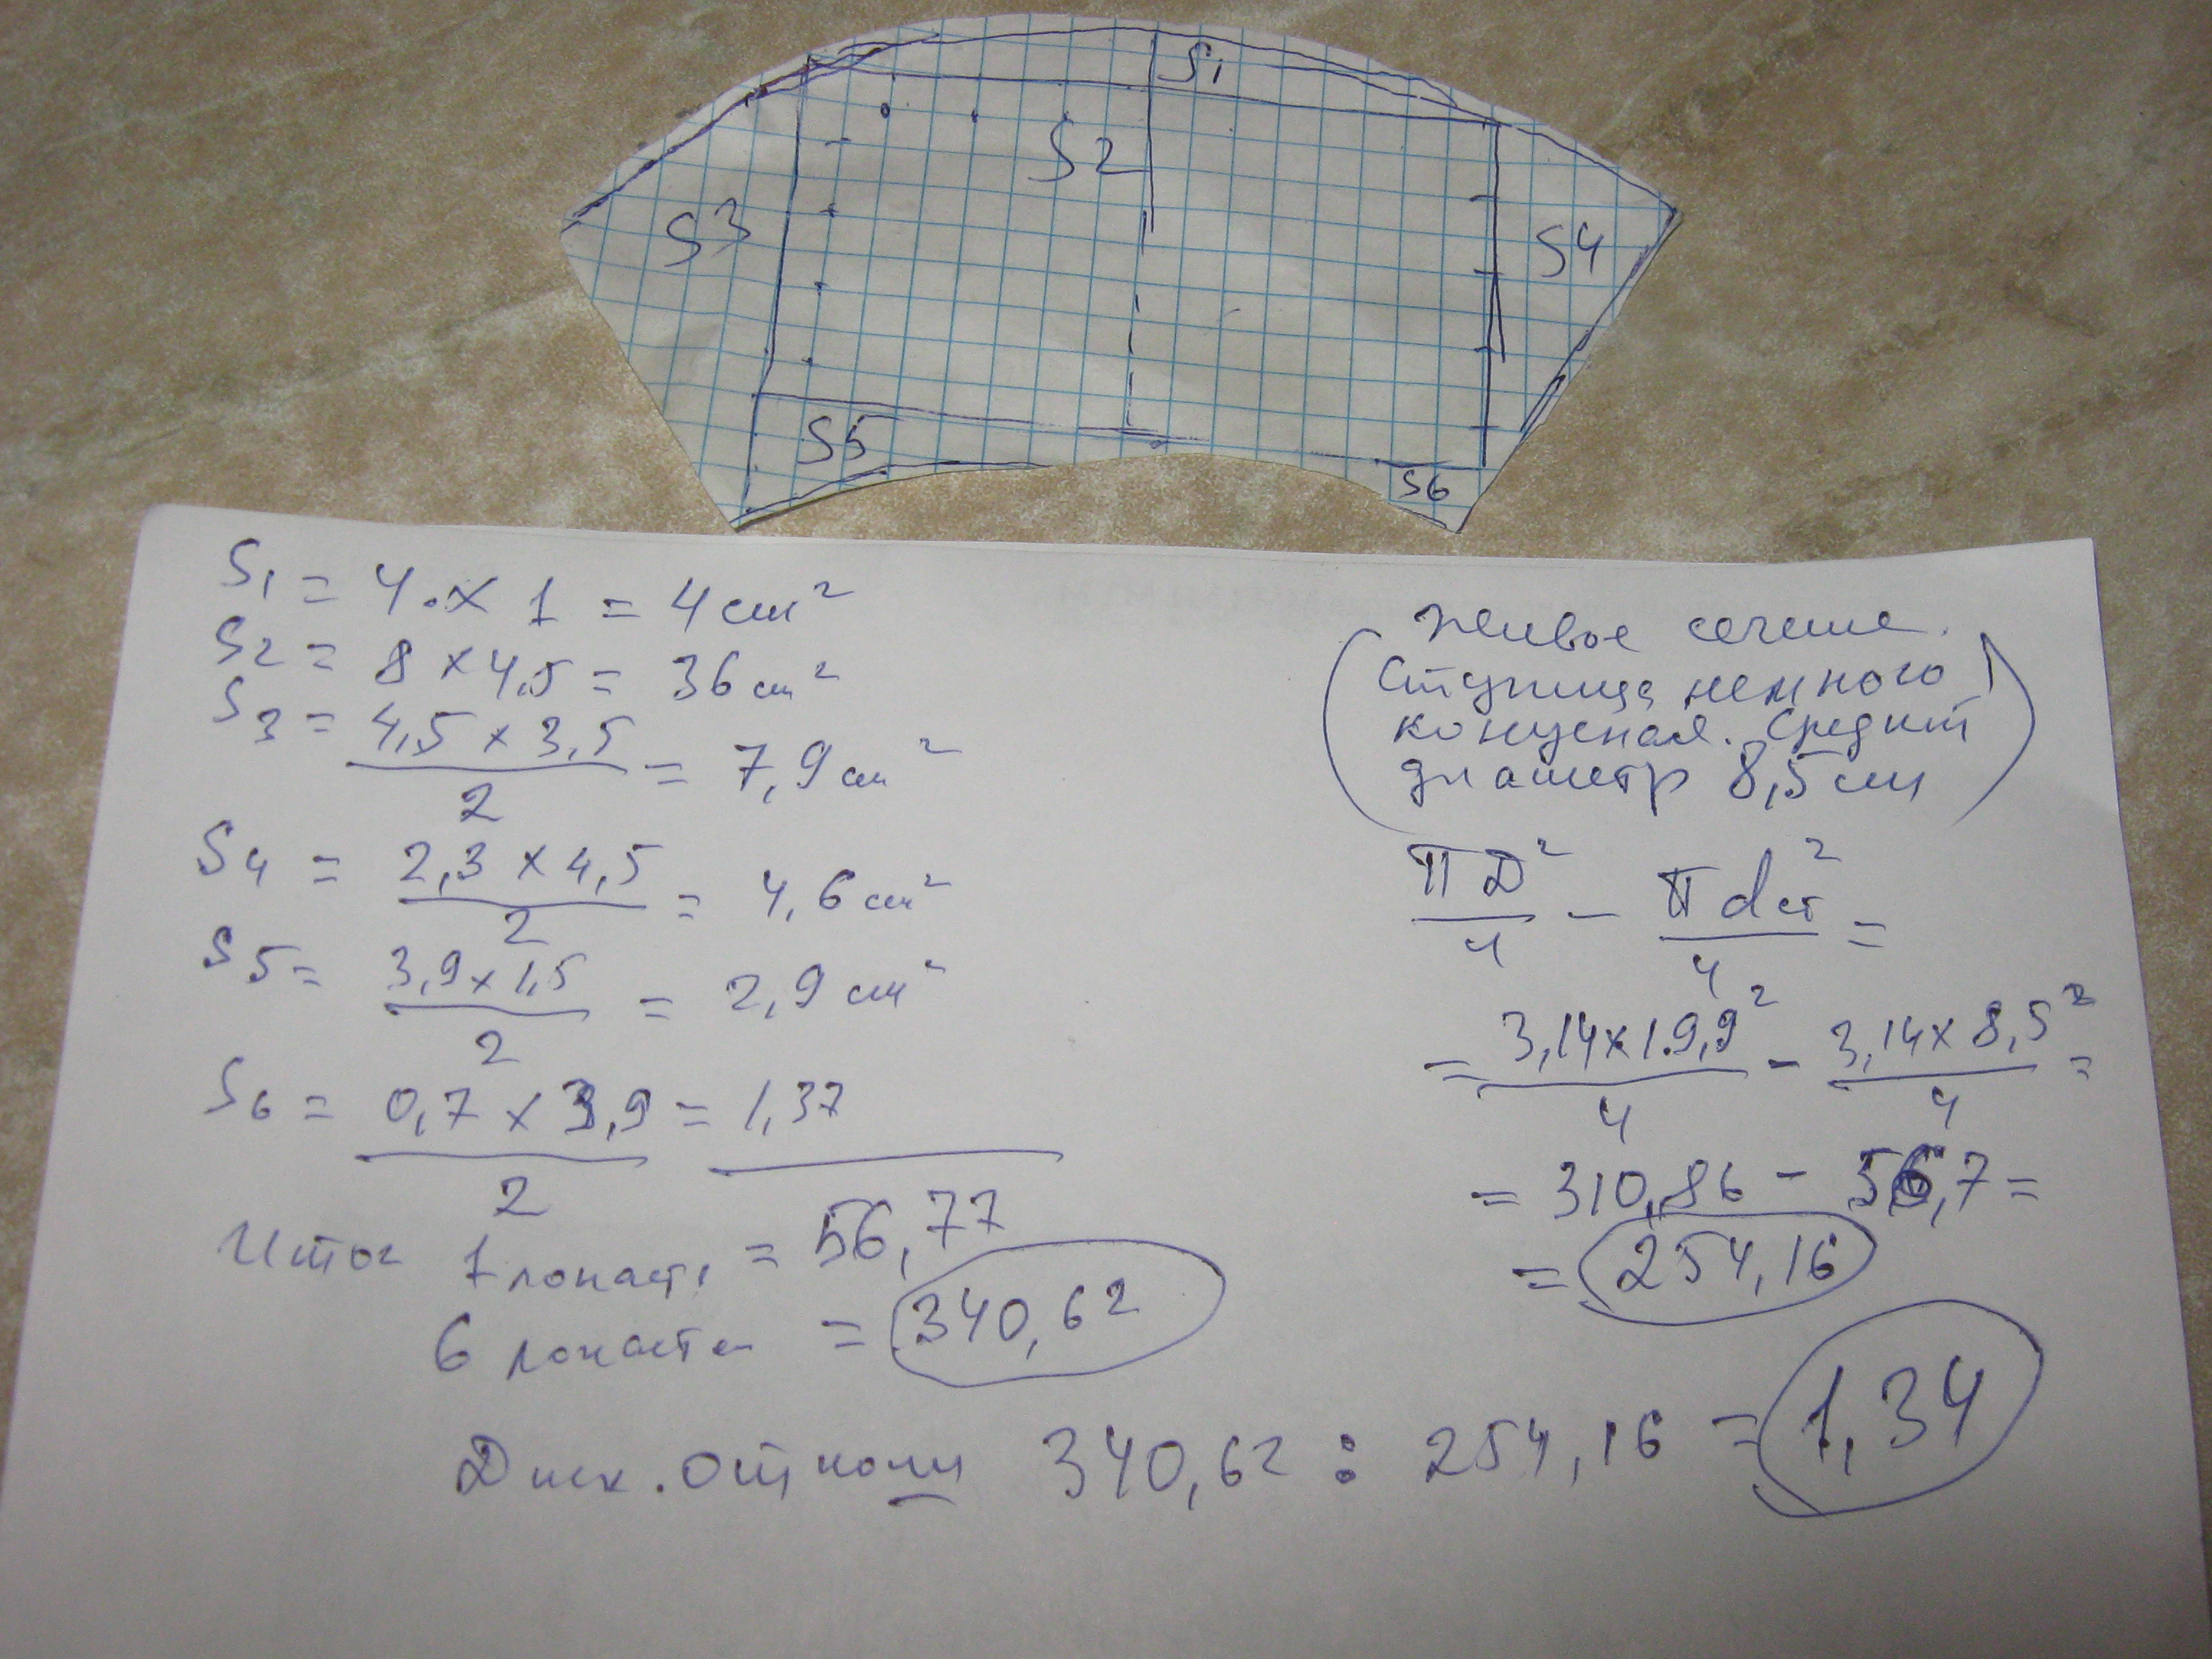 S1
S2
S3
S4
S5
S6
S1 = 4 · x 1 = 4 см²
S2 = 8 x 4,5 = 36 см²
S3 = 4,5 x 3,5 / 2 = 7,9 см²
S4 = 2,3 x 4,5 / 2 = 4,6 см²
S5 = 3,9 x 1,5 / 2 = 2,9 см²
S6 = 0,7 x 3,9 / 2 = 1,37
Итог 1 лопасть = 56,77
6 лопастей = 340,62
Живое сечение.
(Ступица немного
конусная. Средний
диаметр 8,5 см)
πD²/4 - πdст²/4 =
= 3,14 x 19,9²/4 - 3,14 x 8,5²/4 =
= 310,86 - 56,7 =
= 254,16
Диск. отнош 340,62 : 254,16 = 1,34